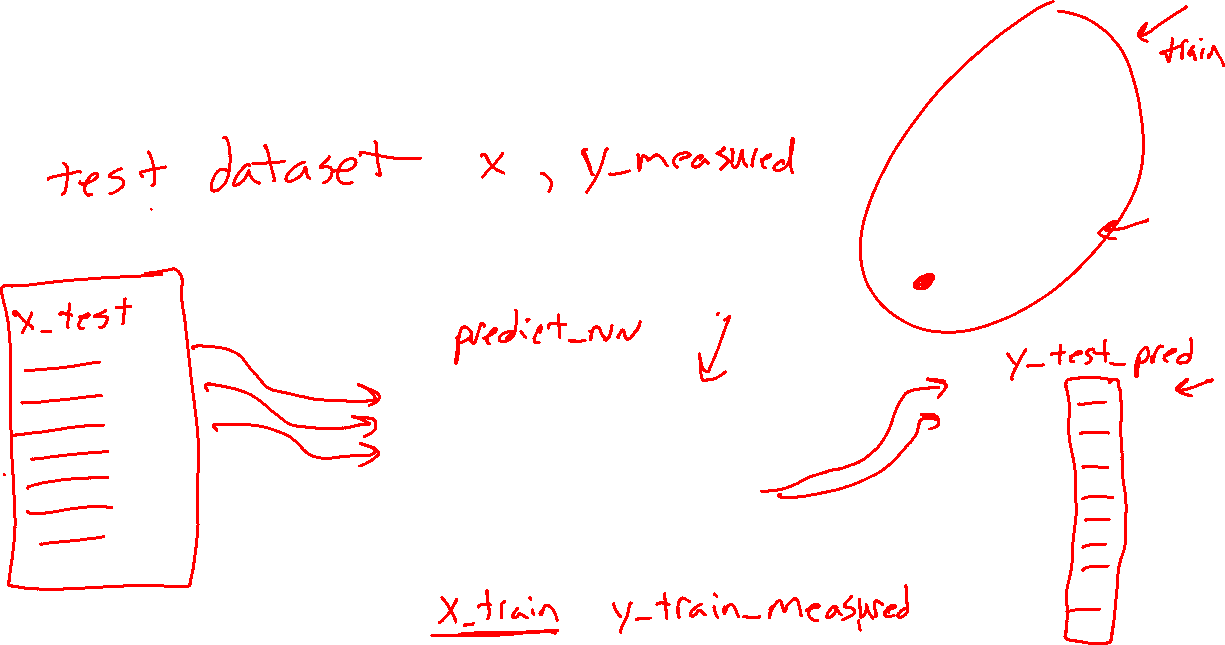 train
test dataset x, y_measured
x_test
predict_nn
y_test_pred
x_train y_train_measured